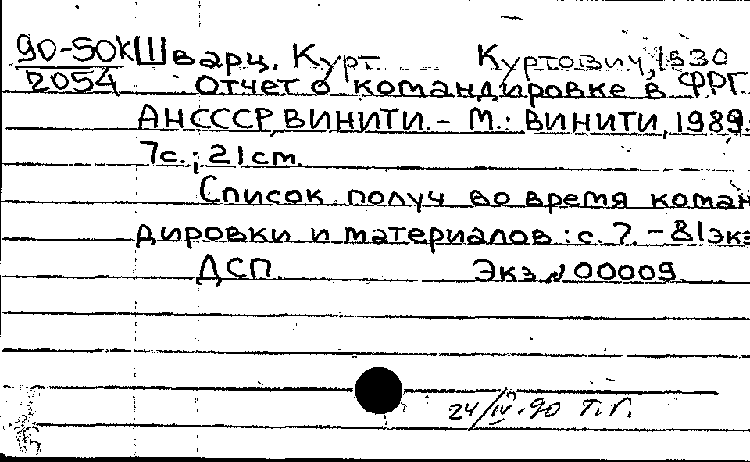 90-50К Шварц, Курт Куртович, 1930
2054 Отчет о командировке в ФРГ.
АН СССР, ВИНИТИ. - М.: ВИНИТИ, 1989.
7с.; 21 cm.
Список получ во время коман
дировки и материалов: с. 7. - 81 экз
ДСП Экз № 00009
24/IV.90 Т.Г.